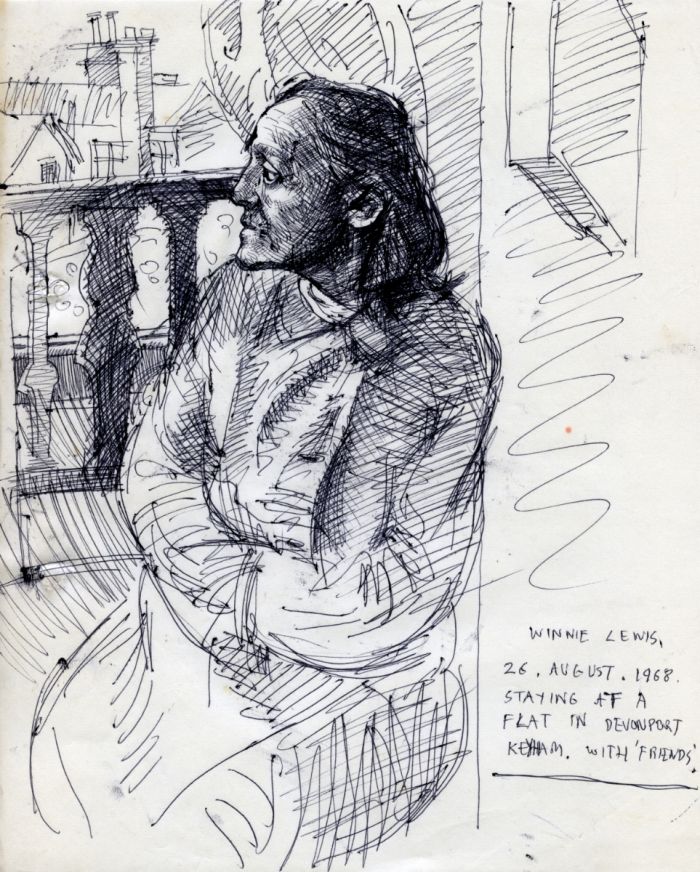 WINNIE LEWIS,
26. AUGUST. 1968.
STAYING AT A
FLAT IN DEVONPORT
KEYHAM. WITH 'FRIENDS'.